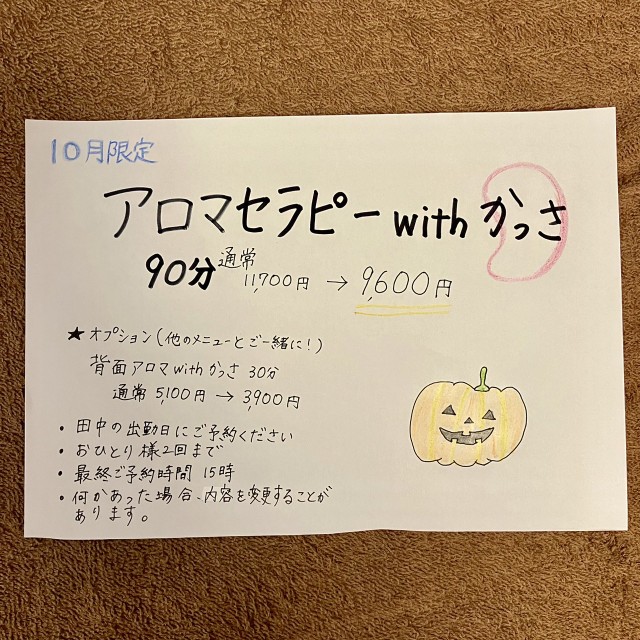 10月限定
アロマセラピー with かっさ
90分 通常 11,700円 → 9,600円
★ オプション(他のメニューとご一緒に!)
背面アロマ with かっさ 30分
通常 5,100円 → 3,900円
・田中の出勤日にご予約ください
・おひとり様2回まで
・最終ご予約時間 15時
・何かあった場合、内容を変更することが
あります。